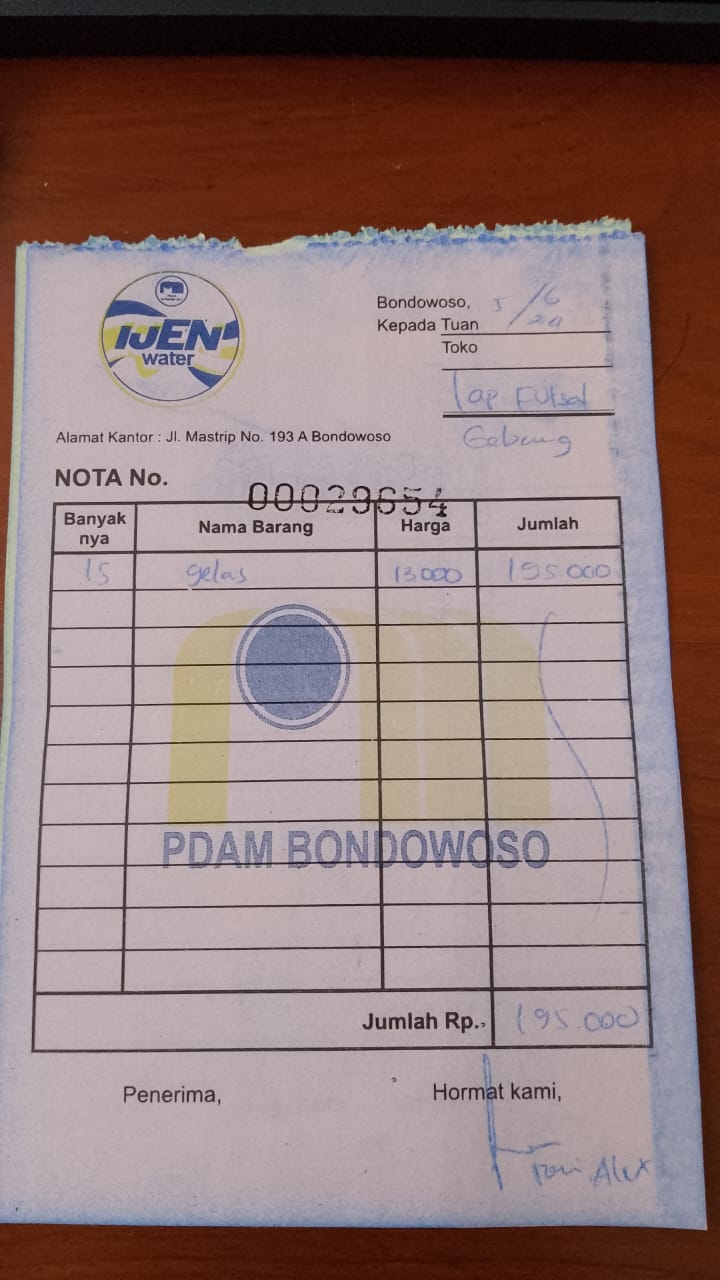 IJEN
water
Bondowoso, 5/6/24
Kepada Tuan
Toko
Lap Futsal
Gebang
Alamat Kantor : Jl. Mastrip No. 193 A Bondowoso
NOTA No. 00029654
Banyak nya Nama Barang Harga Jumlah
15 gelas 13.000 195.000
PDAM BONDOWOSO
Jumlah Rp. 195.000
Penerima, Hormat kami,
Alex